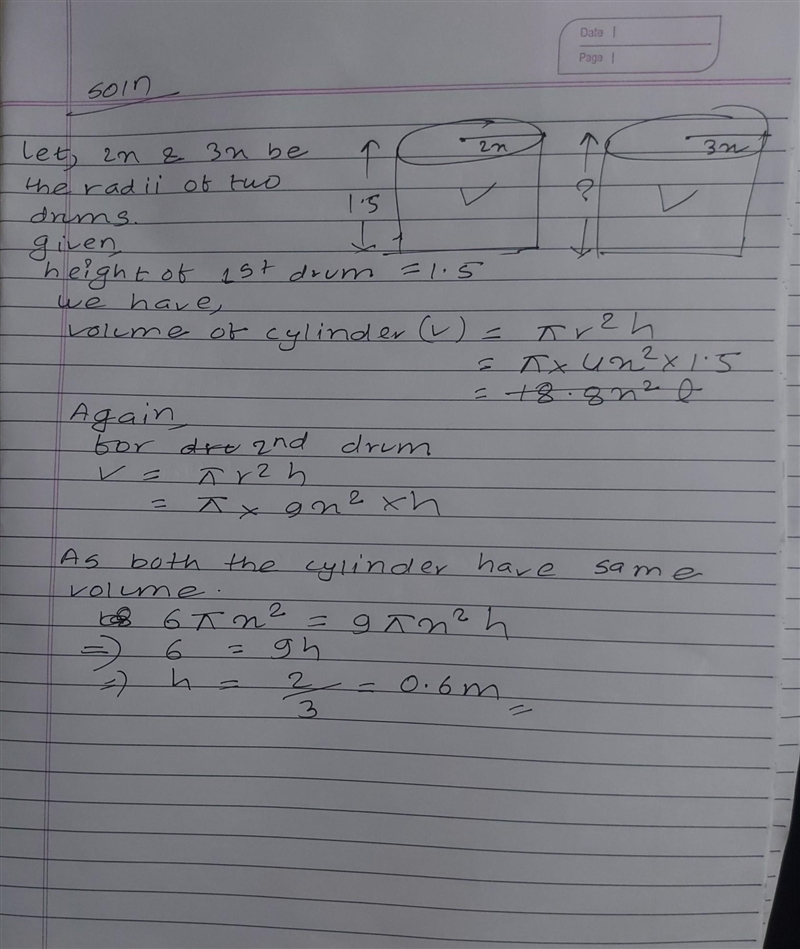 Date |
Page |
soln
Let, 2x & 3x be
the radii of two
drums.
1.5
2x
V
?
3x
V
given,
height of 1st drum = 1.5
we have,
volume of cylinder (V) = πr²h
= π × 4x² × 1.5
= 18.8x²
Again,
for 2nd drum
V = πr²h
= π × 9x² × h
As both the cylinder have same
volume.
6πx² = 9πx²h
=) 6 = 9h
=) h = 2/3 = 0.6m